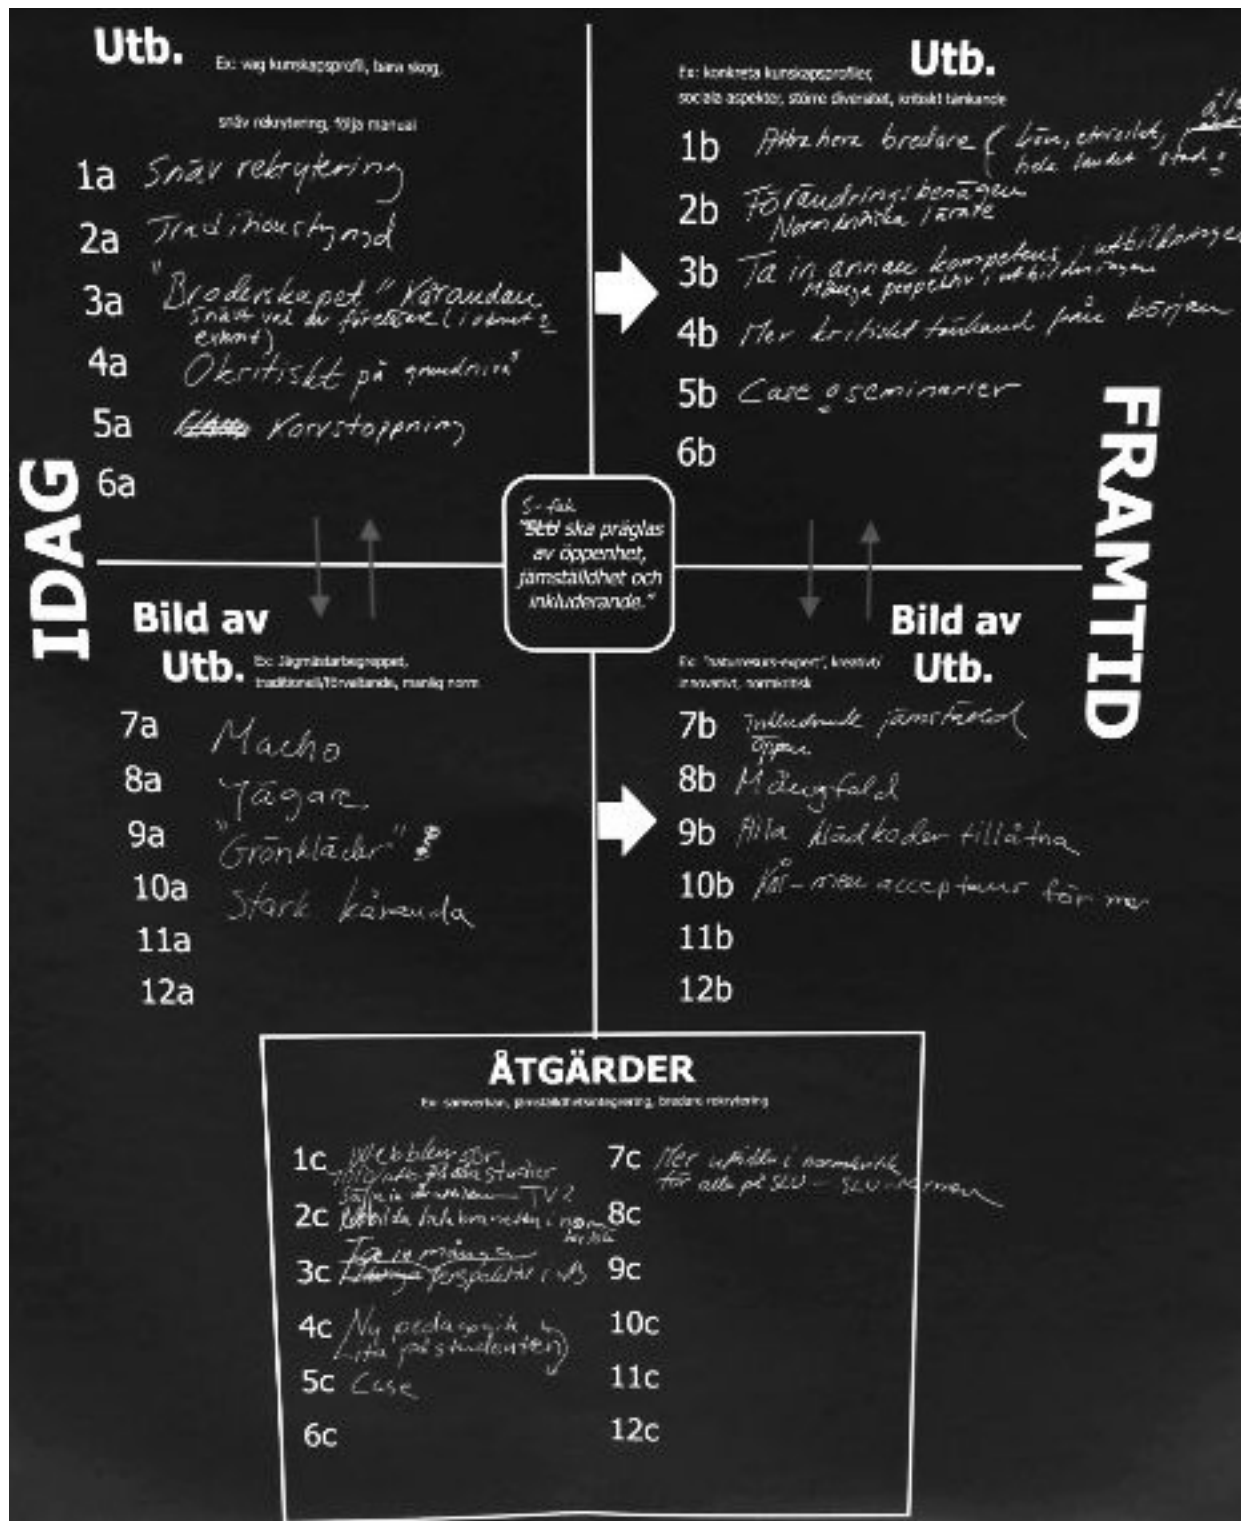 Utb.
Ex: vag kunskapsprofil, bara skog,
snäv rekrytering, följa manual
1a Snäv rekrytering
2a Traditionstyngd
3a "Broderskapet" Kårandan
snävt val av föreläsare (internt &
externt)
4a Okritiskt på grundnivå
5a Korvstoppning
6a
Utb.
Ex: konkreta kunskapsprofiler,
sociala aspekter, större diversitet, kritiskt tänkande
1b Attrahera bredare ( kön, etnicitet,
hela landet stad
2b Förändringsbenägen
Normkritiska lärare
3b Ta in annan kompetens i utbildningen
Många perspektiv i utbildningen
4b Mer kritiskt tänkand från början
5b Case o seminarier
6b
IDAG
FRAMTID
S-fak
"SLU ska präglas
av öppenhet,
jämställdhet och
inkluderande."
Bild av
Utb.
Ex: Jägmästarbegreppet,
traditionell/förvaltande, manlig norm
7a Macho
8a Jägare
9a "Grönkläder"
10a Stark kåranda
11a
12a
Bild av
Utb.
Ex: "naturresurs-expert", kreativt/
innovativt, normkritisk
7b Inkluderande jämställd
öppen
8b Mångfald
9b Alla klädkoder tillåtna
10b Kår - men acceptans för mer
11b
12b
ÅTGÄRDER
Ex: samverkan, jämställdhetsintegrering, bredare rekrytering
1c
TV?
2c
3c Ta in många
perspektiv i utb
4c Ny pedagogik
Lita på studenten)
5c Case
6c
7c Mer utbilda i normkritik
för alla på SLU - SLU-normen
8c
9c
10c
11c
12c